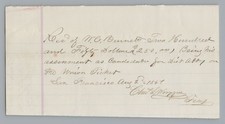 Rec'd of W. C. Bennett Two Hundred
and Fifty Dollars $250, Being his
assessment as Candidate for Dist Atty on
the Union Ticket
San Francisco Aug